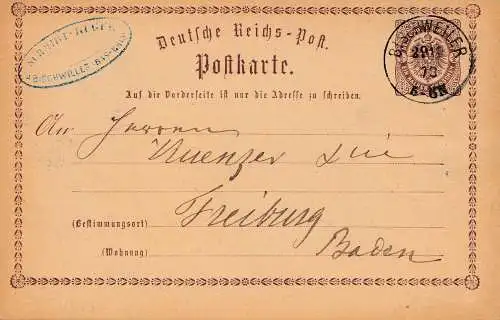 Deutsche Reichs-Post.
Postkarte.
BISCHWEILER
Auf die Vorderseite ist nur die Adresse zu schreiben.
An Herren
Kuenzer
(Bestimmungsort)
Freiburg
(Wohnung)
Baden